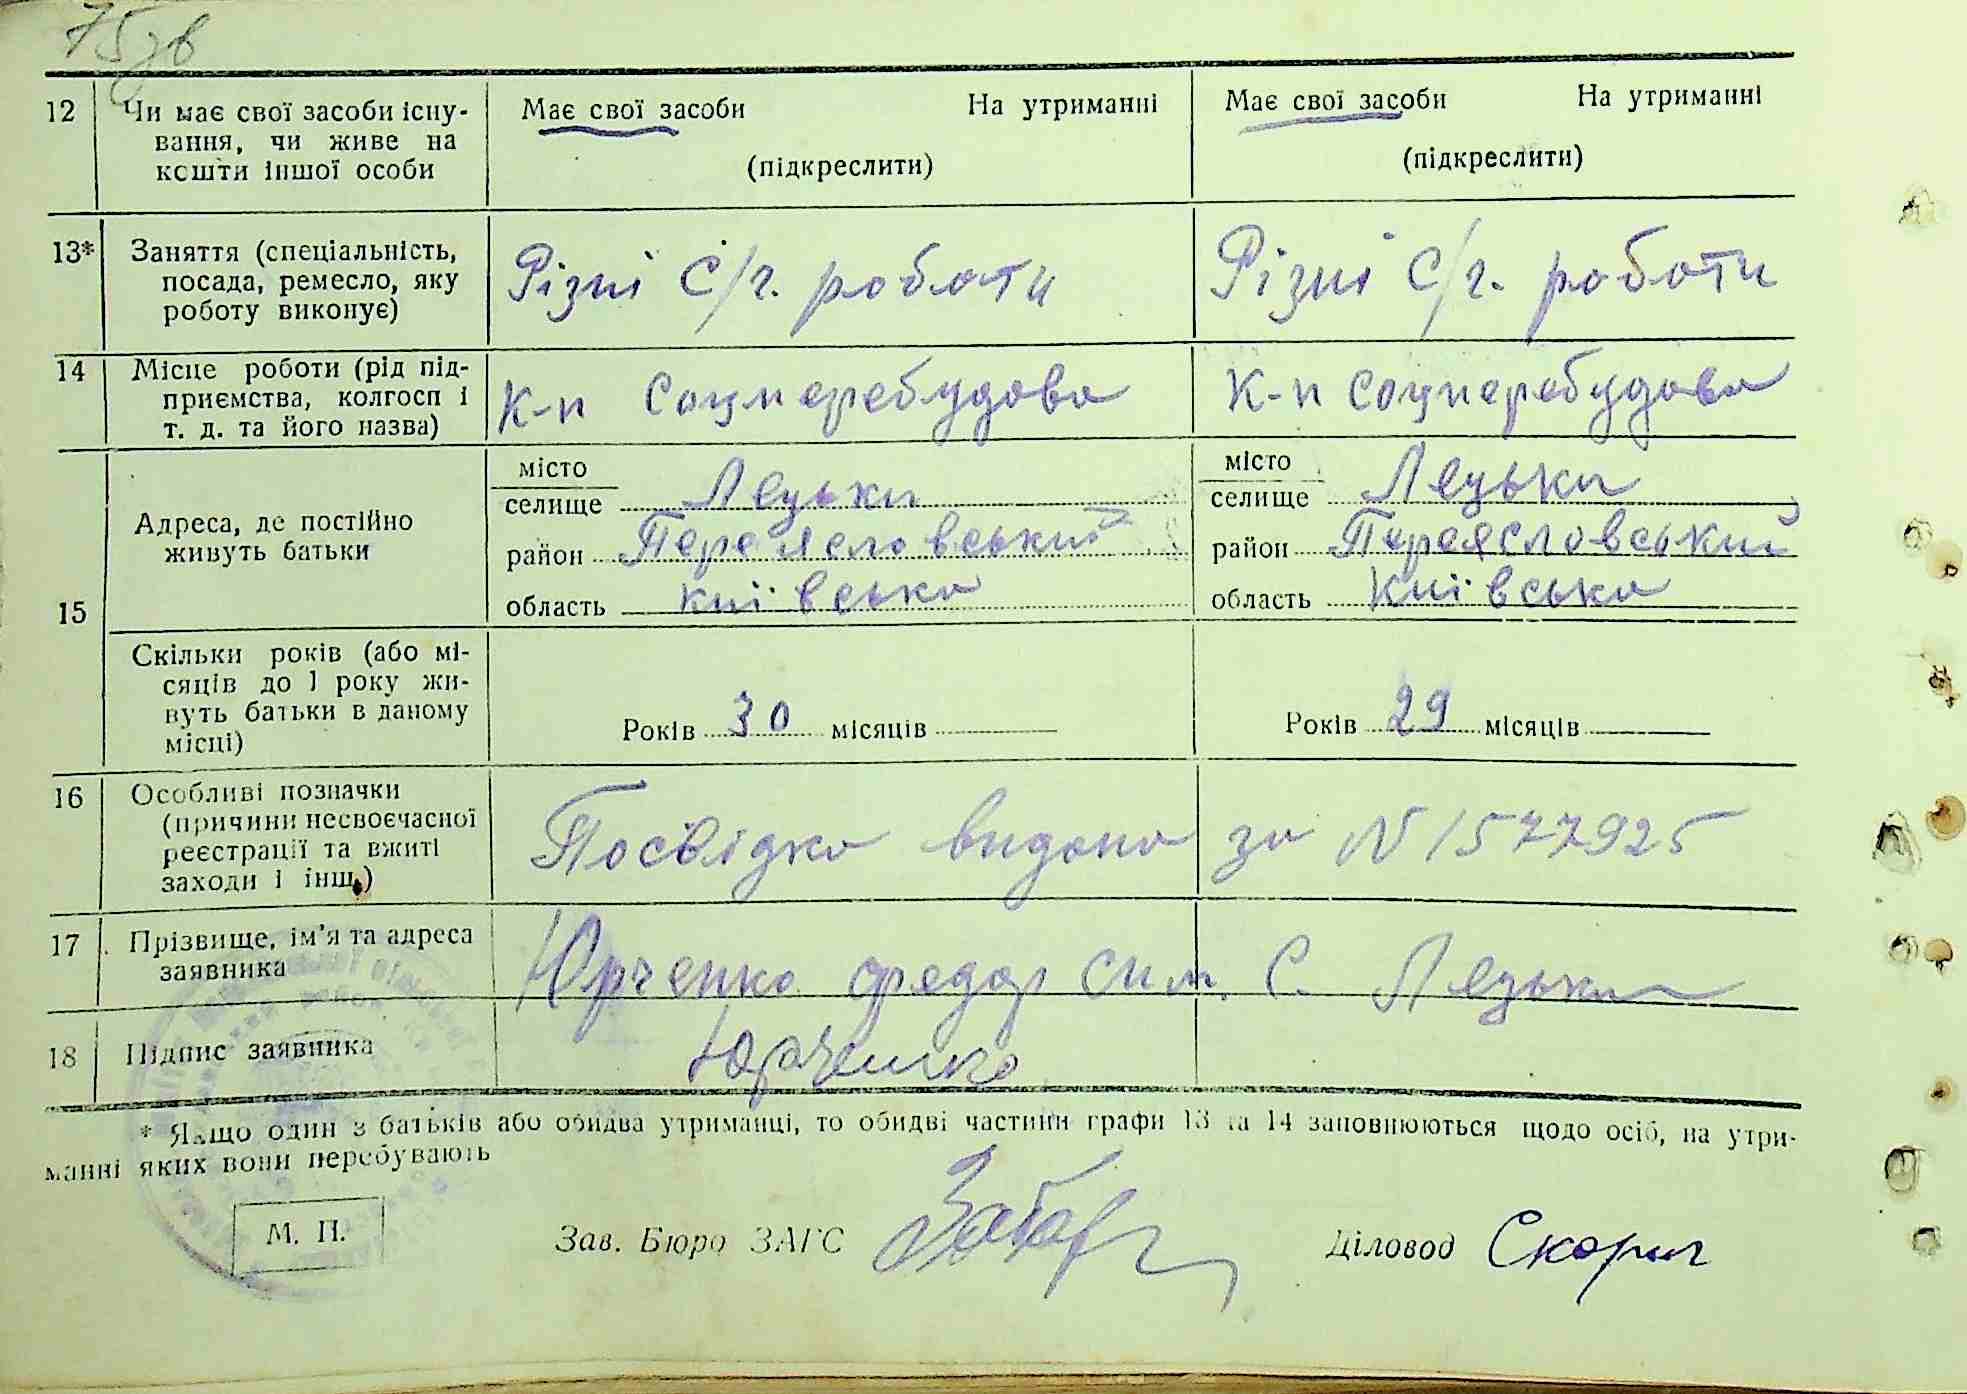 75зв
12 Чи має свої засоби існу- Має свої засоби На утриманні Має свої засоби На утриманні
вання, чи живе на
кошти іншої особи (підкреслити) (підкреслити)
13* Заняття (спеціальність, Різні с/г. роботи Різні с/г. роботи
посада, ремесло, яку
роботу виконує)
14 Місце роботи (рід під- К-п Соцперебудова К-п Соцперебудова
приємства, колгосп і
т. д. та його назва)
15 Адреса, де постійно
живуть батьки
місто місто
селище Лецьки селище Лецьки
район Переясловський район Переясловський
область Київська область Київська
Скільки років (або мі-
сяців до 1 року жи-
вуть батьки в даному
місці) Років 30 місяців Років 29 місяців
16 Особливі позначки
(причини несвоєчасної
реєстрації та вжиті
заходи і інш.) Посвідка видана за N 1577925
17 Прізвище, ім'я та адреса
заявника Юрченко Федор С. Лецьки
18 Підпис заявника Юрченко
* Якщо один з батьків або обидва утриманці, то обидві частини графи 13 та 14 заповнюються щодо осіб, на утри-
манні яких вони перебувають
М. П. Зав. Бюро ЗАГС Діловод